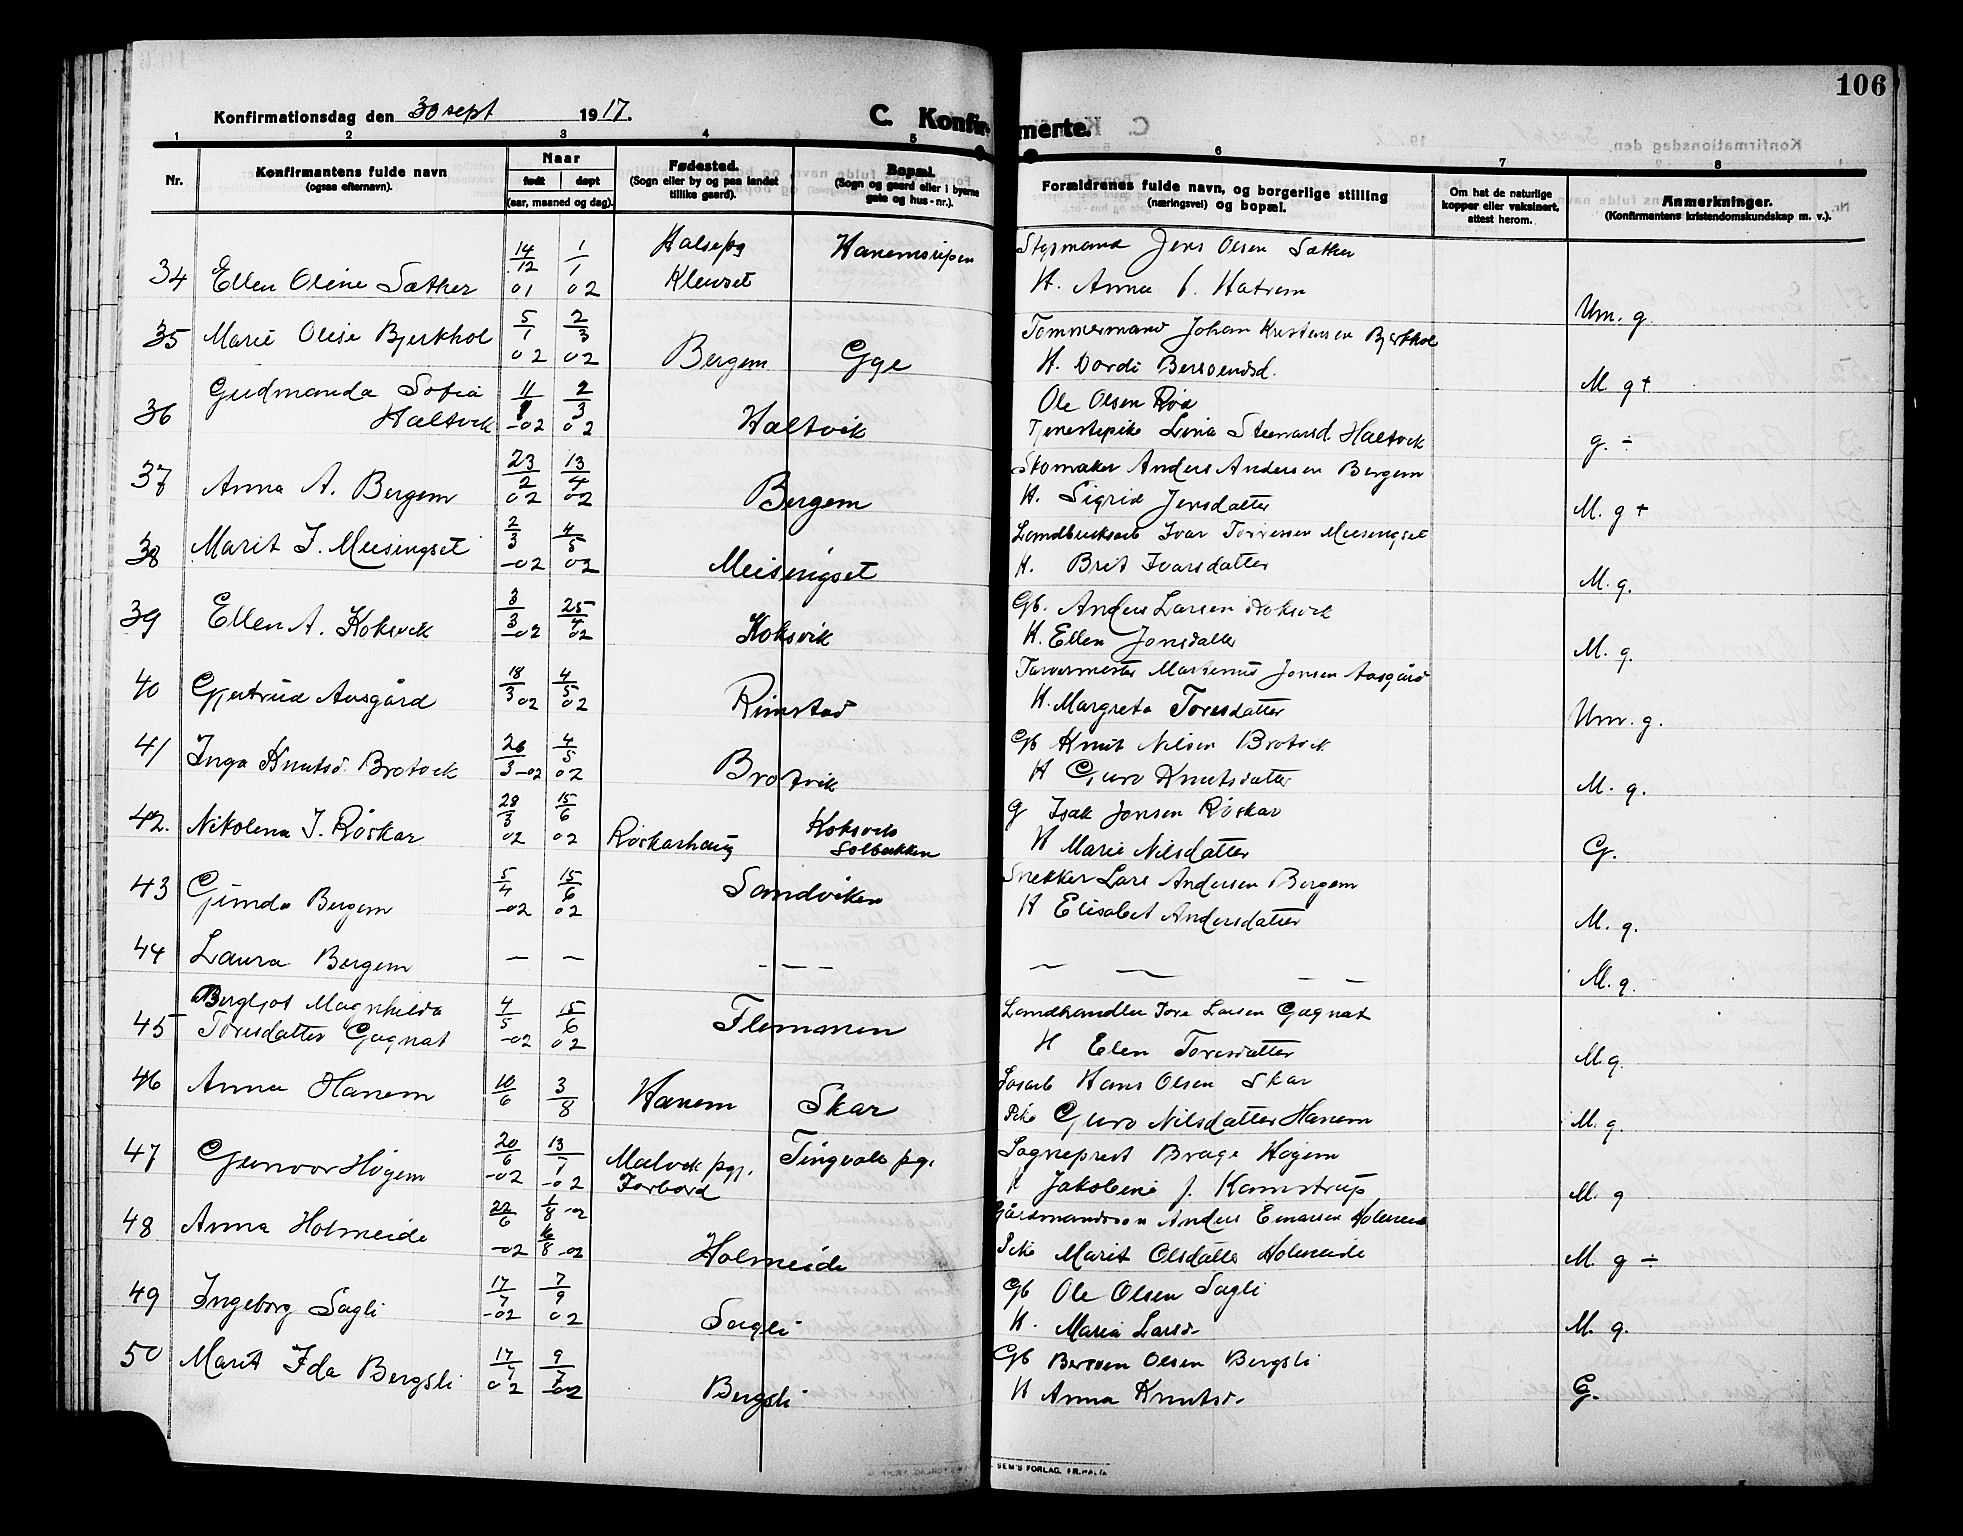 106
Konfirmationsdag den 30 sept 1917. C. Konfirmerte.
1 2 3 4 5 6 7 8
Nr. Konfirmantens fulde navn (ogsaa efternavn). Naar født døpt (aar, maaned og dag). Fødested. (Sogn eller by og paa landet tillike gaard). Bopæl. (Sogn og gaard eller i byerne gate og hus-nr.). Forældrenes fulde navn, og borgerlige stilling (næringsvei) og bopæl. Om hat de naturlige kopper eller vaksinert, attest herom. Anmerkninger. (Konfirmantens kristendomskundskap m. v.).
14/12 1/1 Halse pg Hanemsvpen Stysmand Jens Olsen Sæther
34 Ellen Oline Sæther 01 02 Klevset H. Anna f. Hatrem Um. g.
35 Marie Olise Bjerkhol 5/1 02 2/3 02 Bergem Gge Tømmermand Johan Kristensen Bjerkhol
H. Dordi Bersvendsd. M. g+
Gudmunda Sofia 11/1 2/3 Ole Olsen Rød
36 Haltvik -02 02 Haltvik Tjenestepike Lina Steenarsd Haltvik g. ÷
37 Anna A. Bergem 23/2 02 13/4 02 Bergem Skomaker Anders Andersen Bergem
H. Sigrid Jensdatter M. g +
38 Marit I. Meisingset 2/3 -02 4/5 02 Meisingset Landbruksarb Ivar Torresen Meisingset
H. Brit Ivarsdatter M. g.
39 Ellen A. Koksvik 3/3 -02 25/4 02 Koksvik Gb. Anders Larsen Koksvik
H. Ellen Jonsdatter M. g.
40 Gjertrud Aasgård 18/3 02 4/5 02 Rimstad Farvermester Martinus Jonsen Aasgård
H. Margreta Toresdatter Um. g.
41 Inga Knutsd. Brotvik 26/3 -02 4/5 02 Brotvik Gb Knut Nilsen Brotvik
H Guro Knutsdatter M. g.
42. Nikolena I. Røskar 28/3 02 15/6 02 Røskarhaug Koksvik Solbakken G Isak Jonsen Røskar
H Marie Nilsdatter G.
43 Gunda Bergem 5/4 -02 15/6 02 Sandviken Snekker Lars Andersen Bergem
H Elisabet Andersdatter M. g.
44 Laura Bergem — — - — — — — — — M. g.
Bergljot Magnhilda 4/5 15/6 Landhandler Tore Larsen Gagnat
45 Toresdatter Gagnat -02 02 Flemmen H Elen Toresdatter M. g.
46 Anna Hanem 10/6 3/8 Hanem Skar Løsarb Hans Olsen Skar
Pike Guro Nilsdatter Hanem M. g.
47 Gunvor Høgem 20/6 -02 13/7 -02 Malvik pgj. Forbord Tingvoll pg. Sogneprest Brage Høgem
H Jakobine f. Kamstrup M. g
48 Anna Holmeide 22/6 -02 1/8 -02 16/8 -02 Holmeide Gårdmandssøn Anders Einarsen Holmeide
Pike Marit Olsdatter Holmeide M. g ÷
49 Ingeborg Sagli 17/7 -02 7/9 02 Sagli Gb Ole Olsen Sagli
H. Maria Larsd- M. g.
50 Marit Ida Bergsli 17/7 02 9/7 -02 Bergsli Gb Bersven Olsen Bergsli
H Anna Knutsd- G.
SEM'S FORLAG, FR.HALD